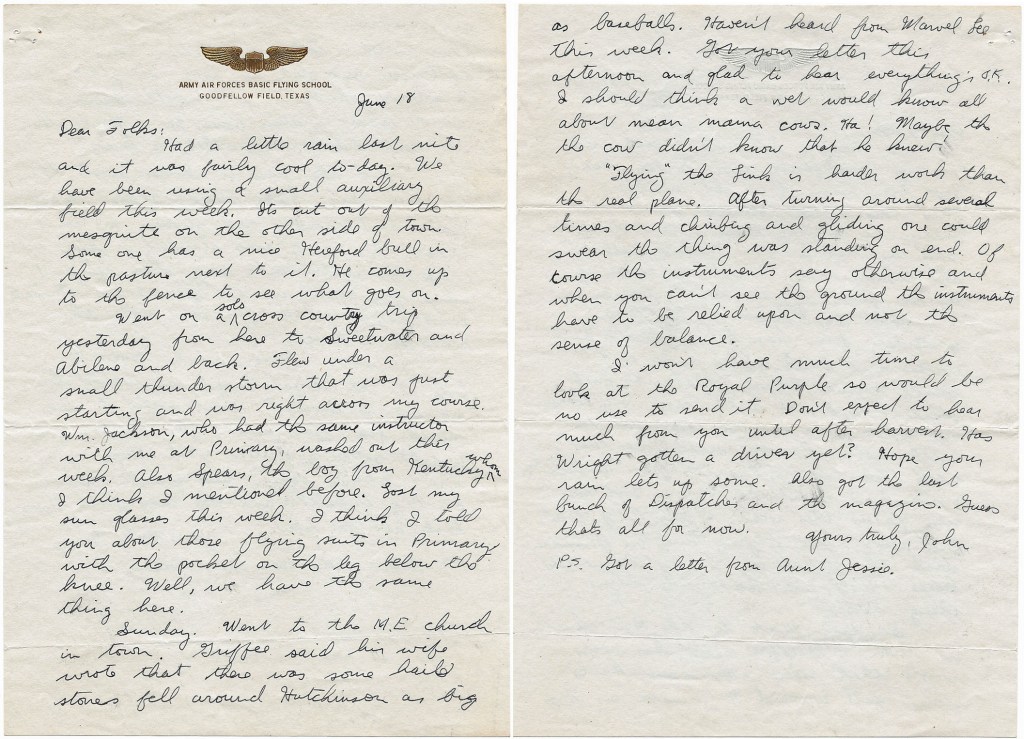 ARMY AIR FORCES BASIC FLYING SCHOOL
GOODFELLOW FIELD, TEXAS
June 18
Dear Folks:
Had a little rain last nite
and it was fairly cool to-day. We
have been using a small auxiliary
field this week. Its cut out of the
mesquite on the other side of town.
Some one has a nice Hereford bull in
the pasture next to it. He comes up
to the fence to see what goes on.
Went on a solo cross country trip
yesterday from here to Sweetwater and
Abilene and back. Flew under a
small thunder storm that was just
starting and was right across my course.
Wm. Jackson, who had the same instructor
with me at Primary, washed out this
week. Also Spears, the boy from Kentucky whom
I think I mentioned before. Lost my
sun glasses this week. I think I told
you about those flying suits in Primary
with the pocket on the leg below the
knee. Well, we have the same
thing here.
Sunday. Went to the M.E. church
in town. Guffee said his wife
wrote that there was some hail
stones fell around Hutchinson as big
as baseballs. Haven't heard from Marvel Lee
this week. Got your letter this
afternoon and glad to hear everything's O.K.
I should think a vet would know all
about mean mama cows. Ha! Maybe the
the cow didn't know that he knew!
"Flying" the Link is harder work than
the real plane. After turning around several
times and climbing and gliding one could
swear the thing was standing on end. Of
course the instruments say otherwise and
when you can't see the ground the instruments
have to be relied upon and not the
sense of balance.
I won't have much time to
look at the Royal Purple so would be
no use to send it. Don't expect to hear
much from you until after harvest. Has
Wright gotten a driver yet? Hope your
rain lets up some. Also got the last
bunch of Dispatches and the magazine. Guess
thats all for now.
Yours truly, John
P.S. Got a letter from Aunt Jessie.